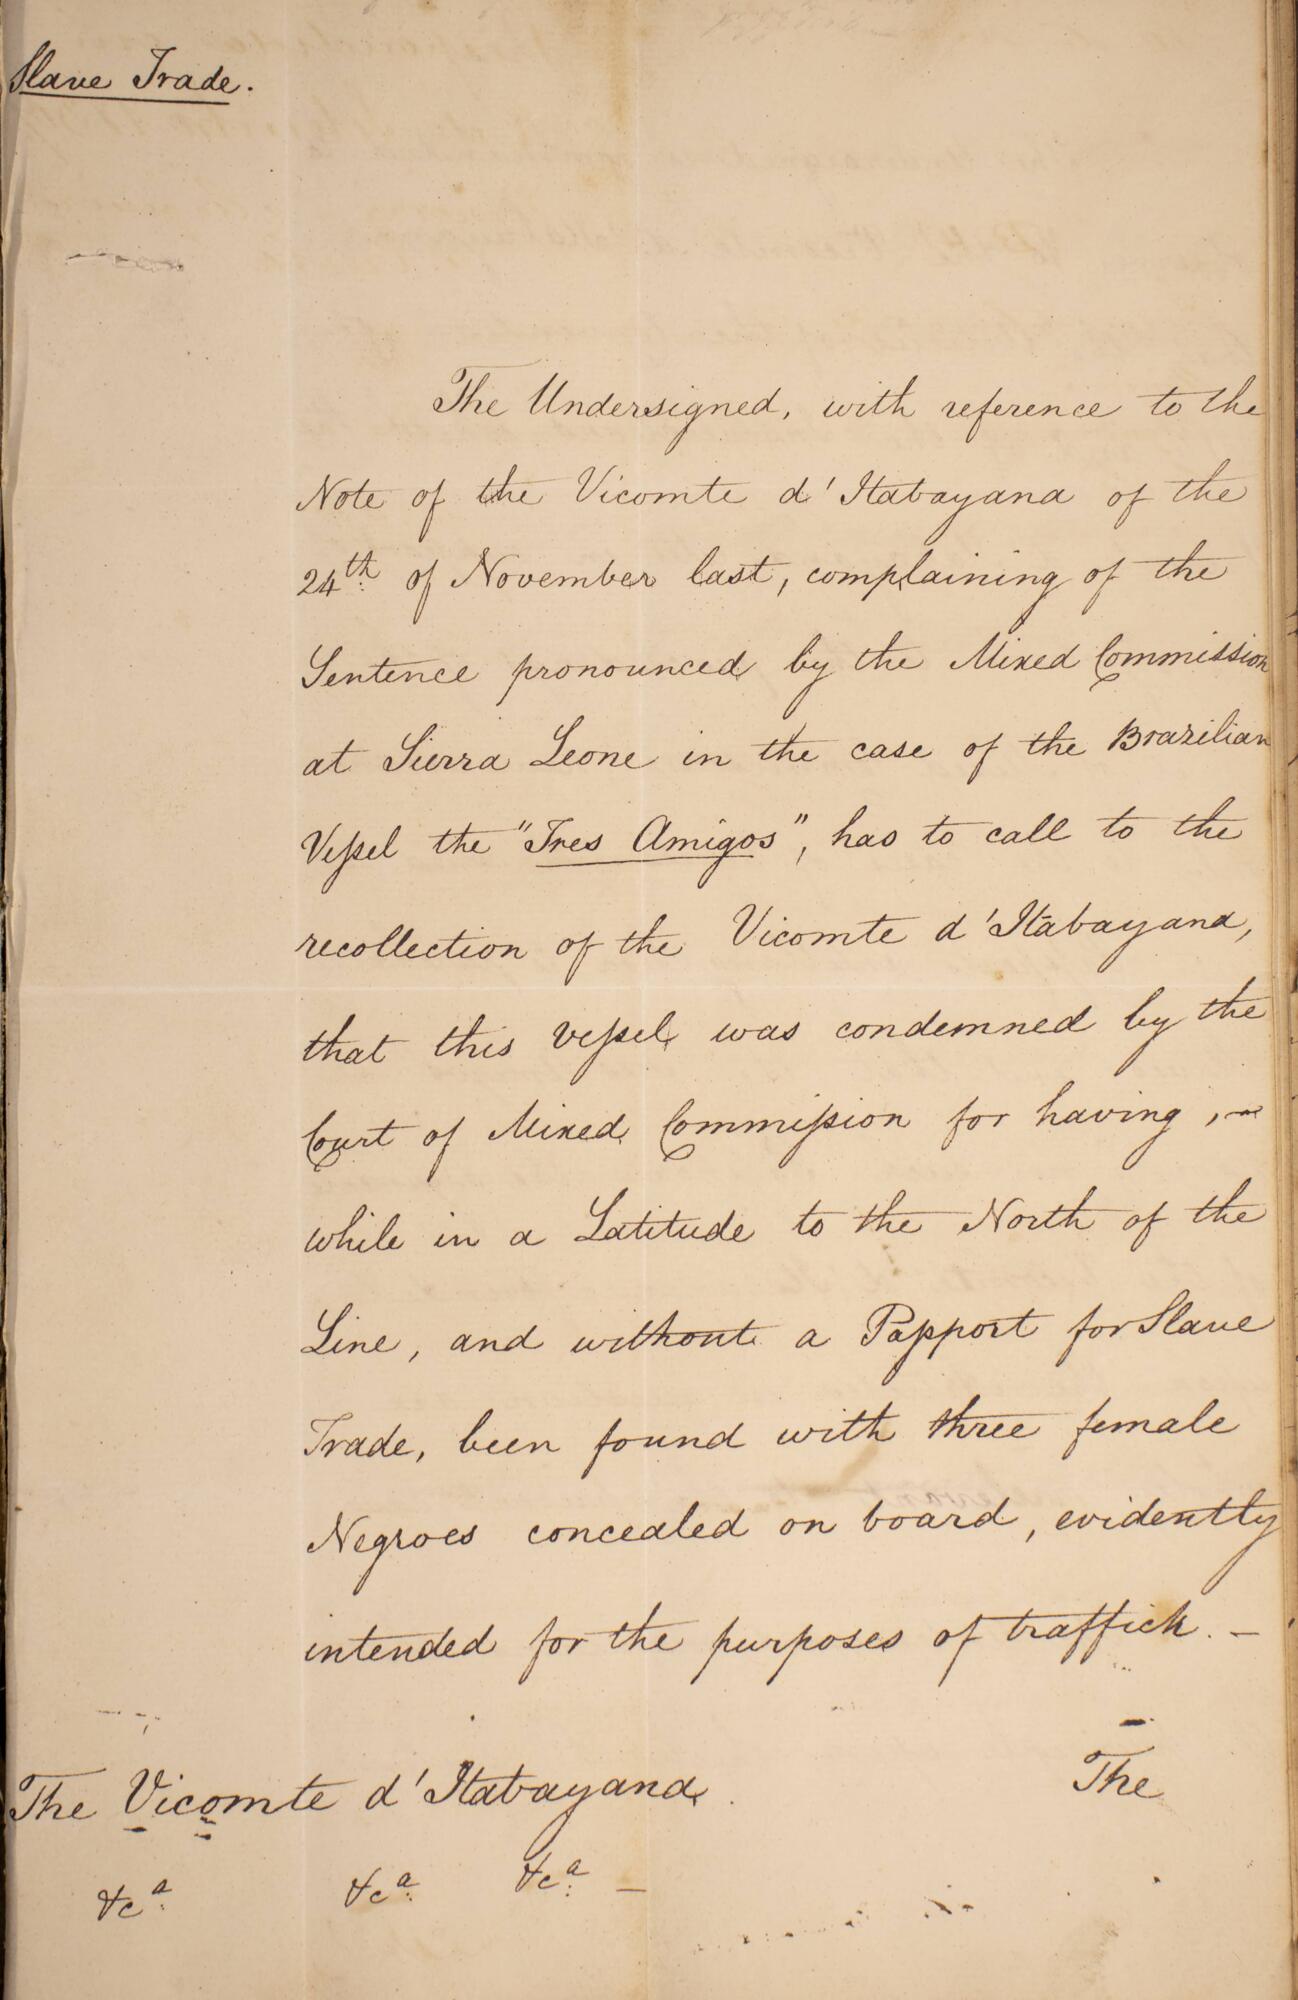 Slave Trade.
The Undersigned, with reference to the
Note of the Vicomte d'Itabayana of the
24th of November last, complaining of the
Sentence pronounced by the Mixed Commission
at Sierra Leone in the case of the Brazilian
Veſsel the "Tres Amigos", has to call to the
recollection of the Vicomte d'Itabayana,
that this veſsel was condemned by the
Court of Mixed Commiſsion for having, -
while in a Latitude to the North of the
Line, and without a Paſsport for Slave
Trade, been found with three female
Negroes concealed on board, evidently
intended for the purposes of traffick. -
The
The Vicomte d'Itabayana.
&ca &ca &ca -